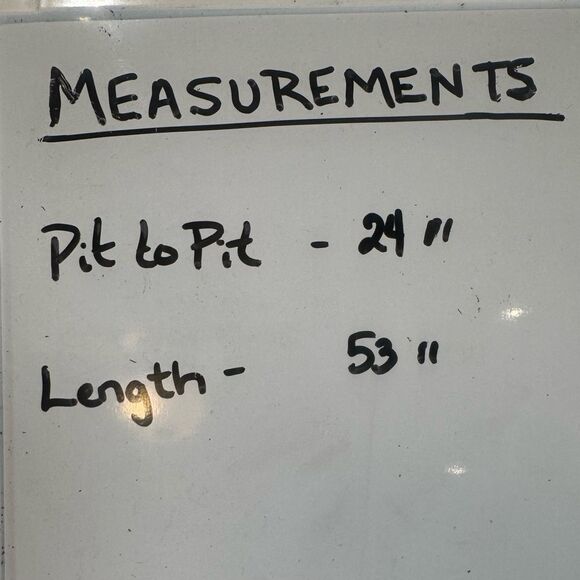 MEASUREMENTS
Pit to Pit - 24"
Length - 53"